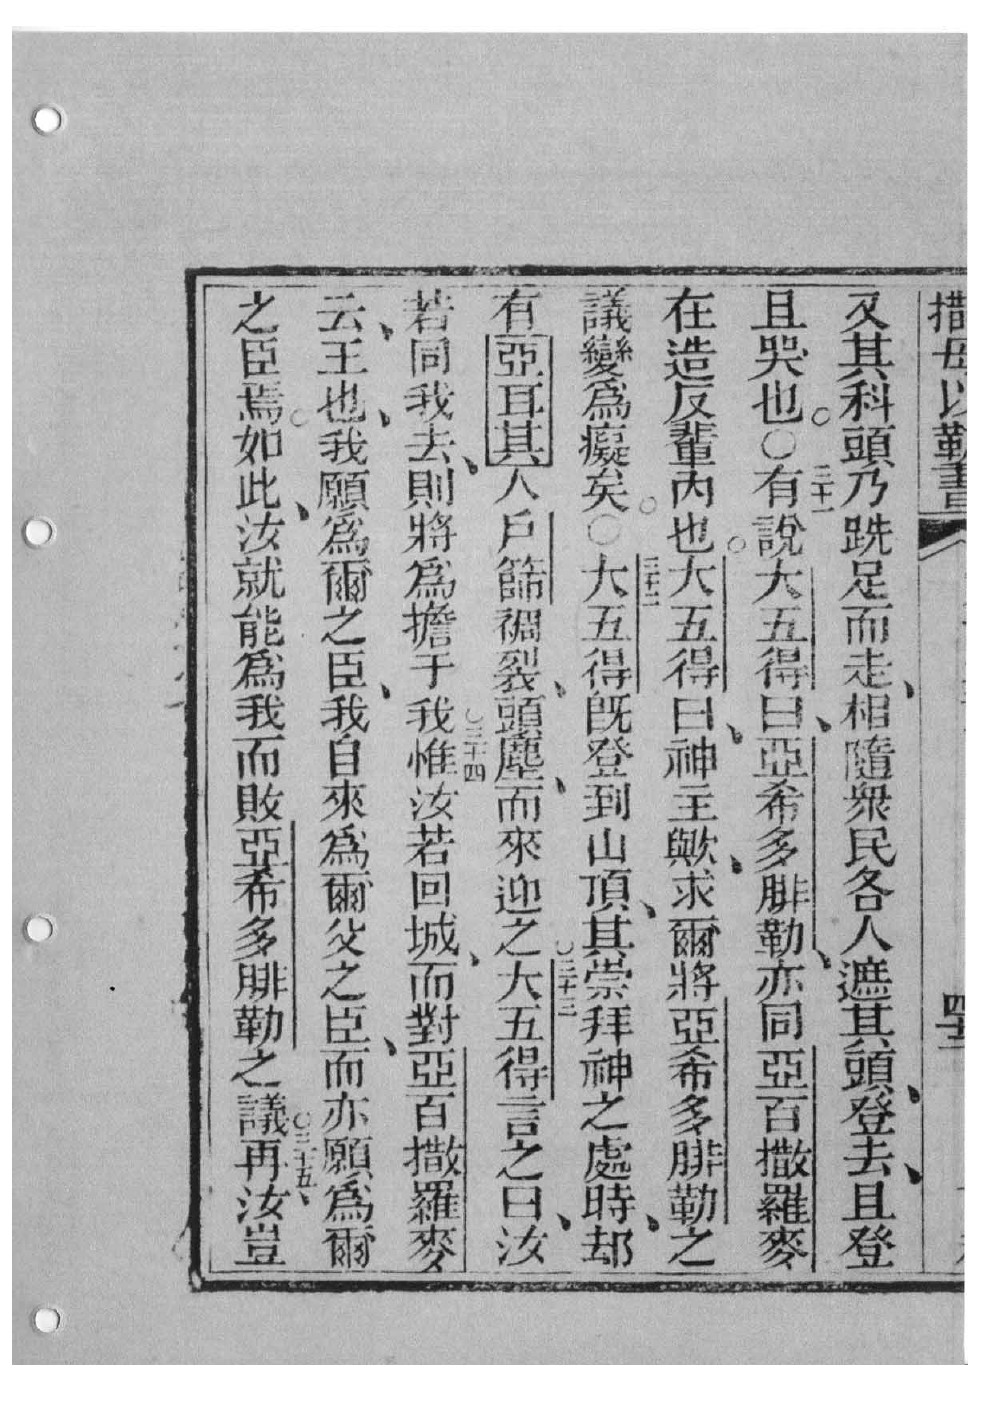 撒母以勒書
四十二
及其科頭乃跣足而走、相隨衆民各人遮其頭、登去、且登
且哭也。○三十一有說大五得曰、亞希多腓勒、亦同亞百撒羅麥
在造反輩內也。大五得曰、神主歟、求爾將亞希多腓勒之
議變爲癡矣。○三十二大五得旣登到山頂、其崇拜神之處時、却
有亞耳其人戶篩裯裂、頭塵、而來迎之○三十三大五得言之曰、汝
若同我去、則將爲擔于我○三十四惟汝若回城、而對亞百撒羅麥
云、王也、我願爲爾之臣、我自來爲爾父之臣、而亦願爲爾
之臣焉。如此、汝就能爲我而敗亞希多腓勒之議○三十五、再汝豈